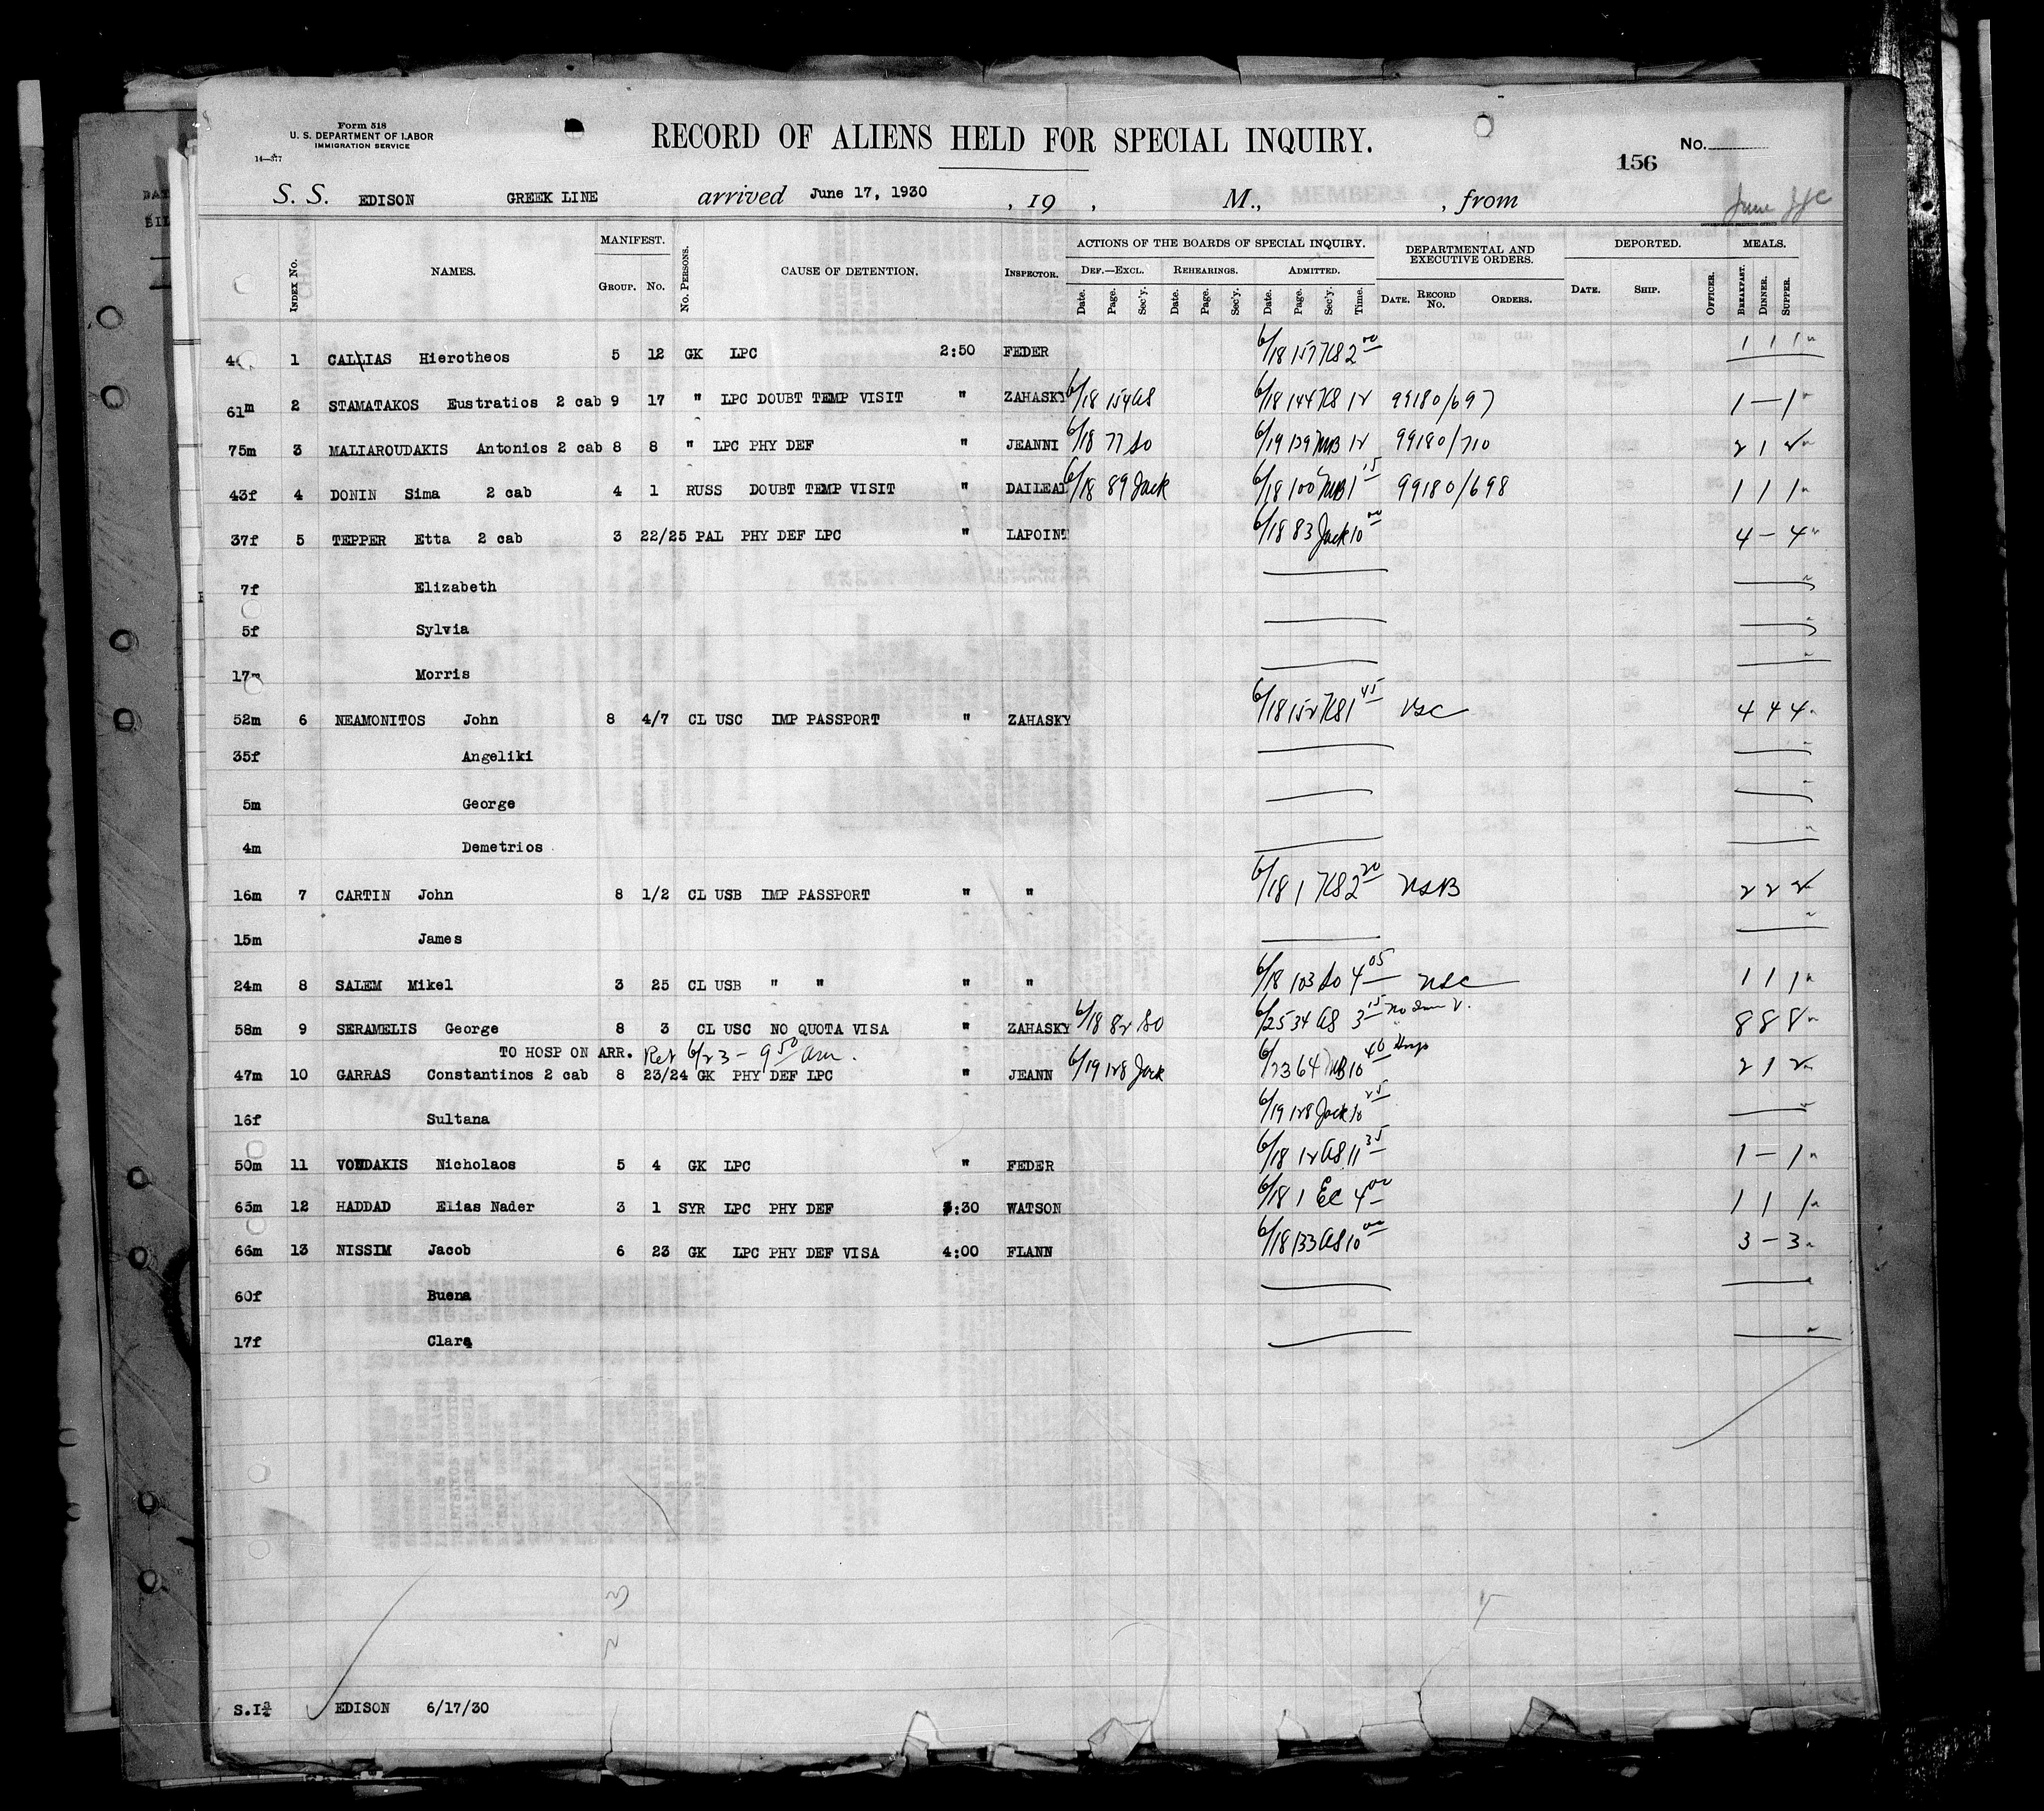 Form 518
U. S. DEPARTMENT OF LABOR
IMMIGRATION SERVICE
14—377
RECORD OF ALIENS HELD FOR SPECIAL INQUIRY.
No.
156
S. S. EDISON GREEK LINE arrived June 17, 1930 , 19 , M., , from
June
INDEX No. NAMES. MANIFEST. GROUP. No. No. PERSONS. CAUSE OF DETENTION. INSPECTOR. ACTIONS OF THE BOARDS OF SPECIAL INQUIRY. DEF.—EXCL. Date. Page. Sec'y. REHEARINGS. Date. Page. Sec'y. ADMITTED. Date. Page. Sec'y. Time. DEPARTMENTAL AND EXECUTIVE ORDERS. DATE. RECORD No. ORDERS. DEPORTED. DATE. SHIP. OFFICER. MEALS. BREAKFAST. DINNER. SUPPER.
1 CALLIAS Hierotheos 5 12 GK LPC 2:50 FEDER 6/18 157 KS 2 00 1 1 1
61m 2 STAMATAKOS Eustratios 2 cab 9 17 " LPC DOUBT TEMP VISIT " ZAHASKY 6/18 154 AS 6/18 144 KS 12 99180/697 1 — 1
75m 3 MALIAROUDAKIS Antonios 2 cab 8 8 " LPC PHY DEF " JEANNI 6/18 77 SO 6/19 139 MB 12 99180/710 2 1 2
43f 4 DONIN Sima 2 cab 4 1 RUSS DOUBT TEMP VISIT " DAILEAD 6/18 89 Jack 6/18 100 MB 1 15 99180/698 1 1 1
37f 5 TEPPER Etta 2 cab 3 22/25 PAL PHY DEF LPC " LAPOINT 6/18 83 Jack 10 00 4 — 4
7f Elizabeth
5f Sylvia
17m Morris
52m 6 NEAMONITOS John 8 4/7 CL USC IMP PASSPORT " ZAHASKY 6/18 152 KS 1 45 USC 4 4 4
35f Angeliki
5m George
4m Demetrios
16m 7 CARTIN John 8 1/2 CL USB IMP PASSPORT " " 6/18 1 KS 2 20 USB 2 2 2
15m James
24m 8 SALEM Mikel 3 25 CL USB " " " " 6/18 103 SO 4 05 USC 1 1 1
58m 9 SERAMELIS George 8 3 CL USC NO QUOTA VISA " ZAHASKY 6/18 82 SO 6/25 34 AS 3 15 8 8 8
TO HOSP ON ARR. Ret 6/23 - 9 50 am.
47m 10 GARRAS Constantinos 2 cab 8 23/24 GK PHY DEF LPC " JEANN 6/19 128 Jack 6/23 64 MB 10 40 Hosp 2 1 2
16f Sultana 6/19 128 Jack 10 25
50m 11 VONDAKIS Nicholaos 5 4 GK LPC " FEDER 6/18 12 AS 11 35 1 — 1
65m 12 HADDAD Elias Nader 3 1 SYR LPC PHY DEF 3:30 WATSON 6/18 1 EC 4 00 1 1 1
66m 13 NISSIM Jacob 6 23 GK LPC PHY DEF VISA 4:00 FLANN 6/18 133 AS 10 00 3 — 3
60f Buena
17f Clara
EDISON 6/17/30